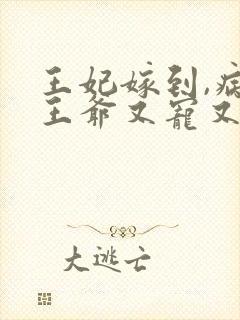 王妃嫁到,病
王爷又宠又
大逃亡